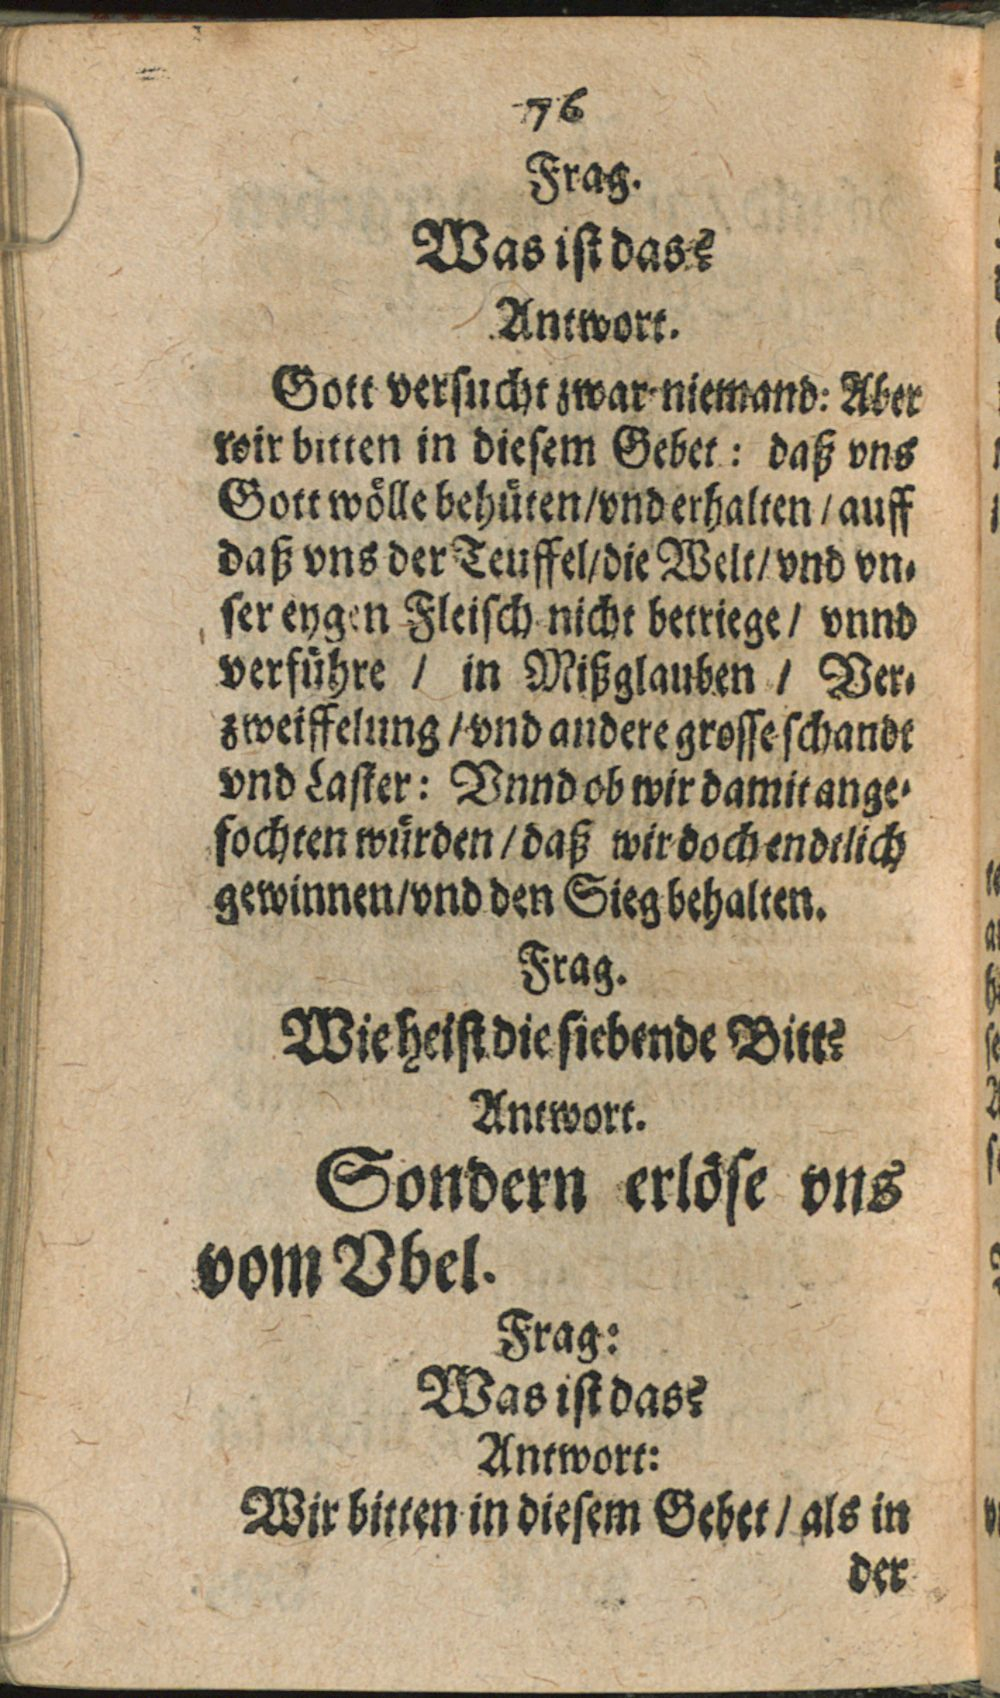 76
Frag.
Was iſt das?
Antwort.
Gott verſucht zwar niemand: Aber
wir bitten in dieſem Gebet: daß vns
Gott woͤlle behuͤten/vnd erhalten/auff
daß vns der Teuffel/die Welt/vnd vn-
ſer eygen Fleiſch nicht betriege/ vnnd
verfuͤhre / in Mißglauben / Ver-
zweiffelung/vnd andere groſſe ſchande
vnd Laſter: Vnnd ob wir damit ange-
fochten wuͤrden/daß wir doch endtlich
gewinnen/vnd den Sieg behalten.
Frag.
Wie heiſt die ſiebende Bitt?
Antwort.
Sondern erloͤſe vns
vom Vbel.
Frag:
Was iſt das?
Antwort:
Wir bitten in dieſem Gebet/als in
der